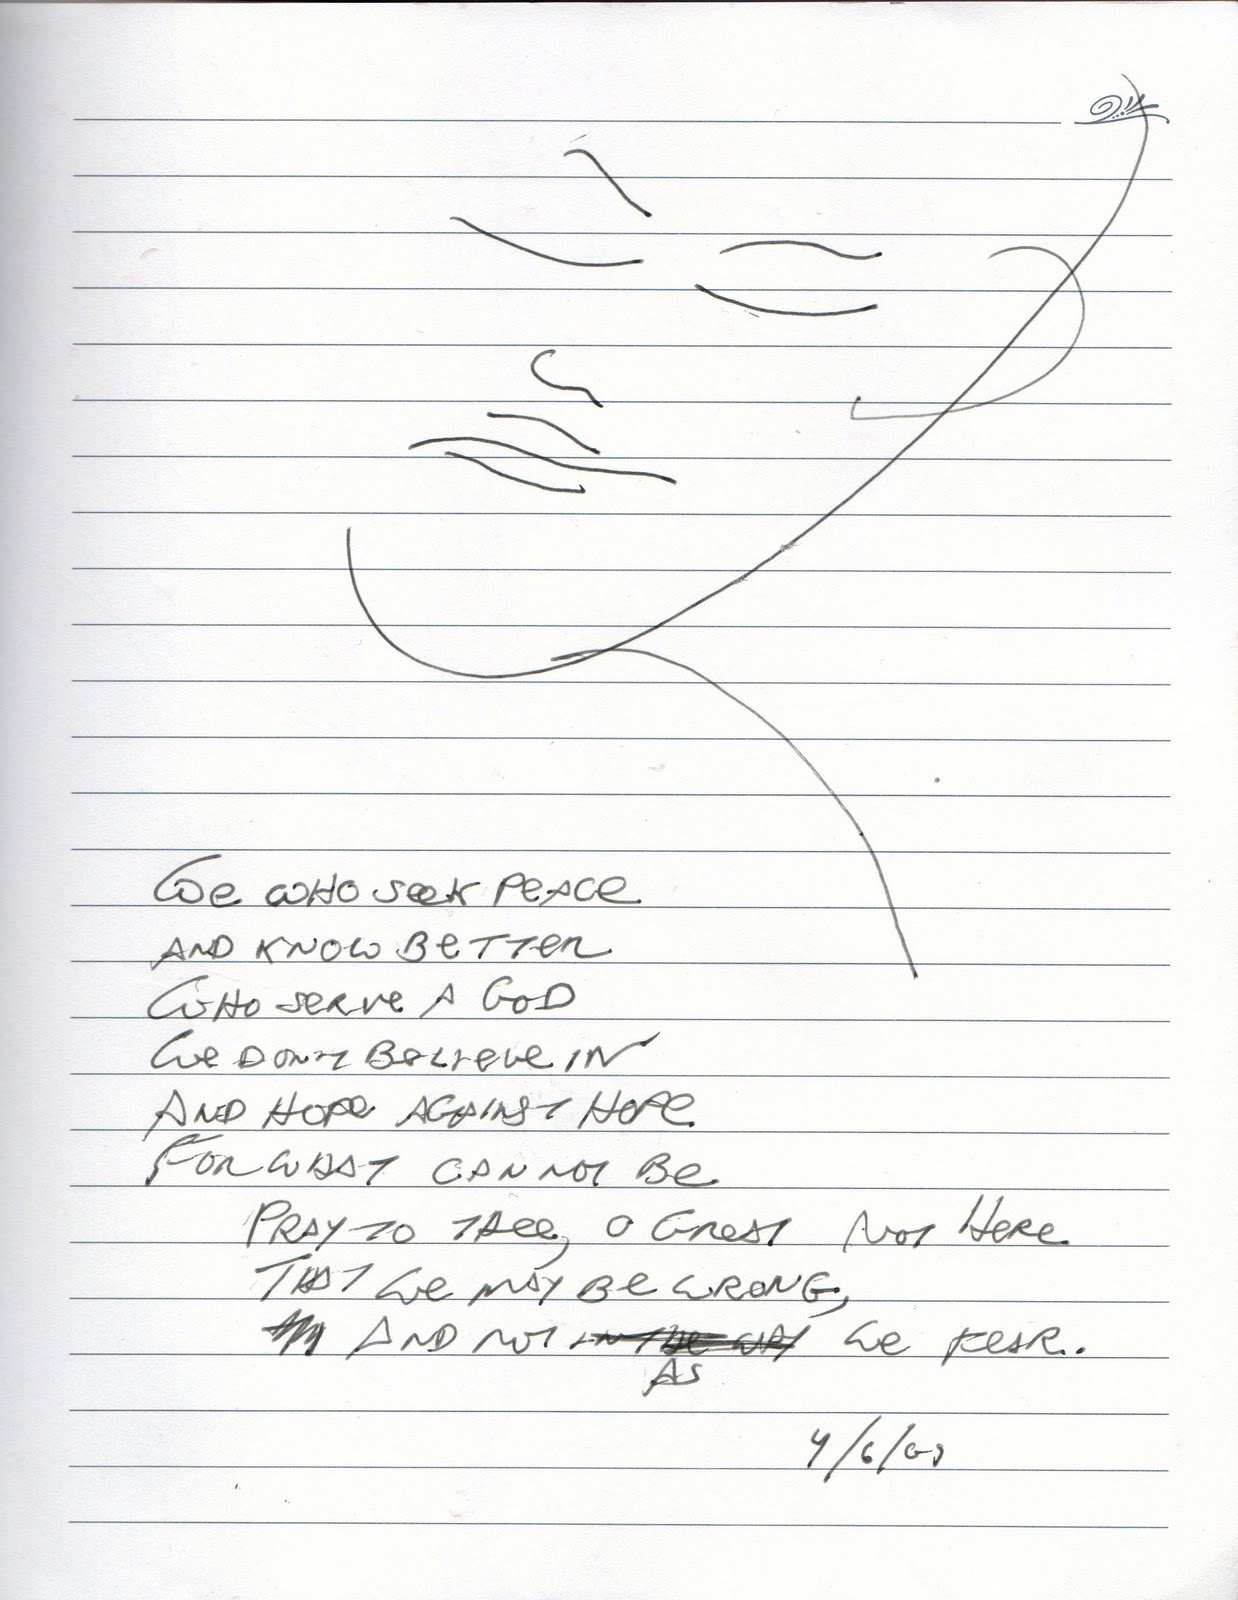 We who seek peace
and know better
Who serve a God
We don't believe in
And hope against hope
For what cannot be
Pray to thee, o Great Not Here
That we may be wrong,
And not in the way we fear..
As